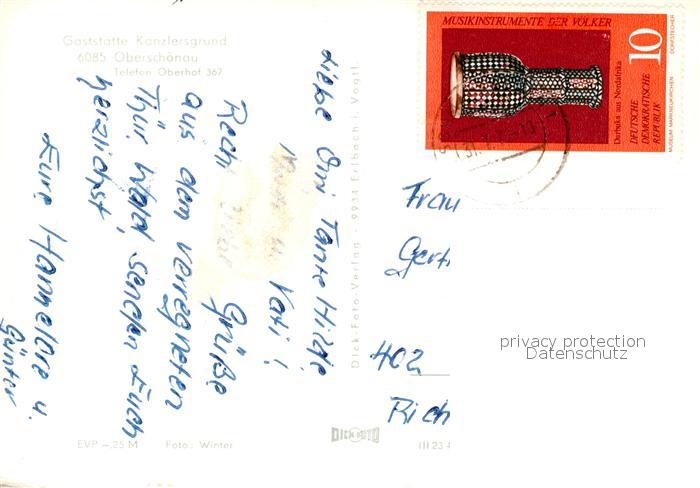 Gaststätte Kanzlersgrund
6085 Oberschönau
Telefon Oberhof 367
Liebe Omi Tante Hilde
u. Vati!
Recht viele Grüße
aus dem verregneten
Thür Wald senden Euch
herzlichst,
Eure Hannelore u.
Günter
EVP -,25 M Foto: Winter
Dick-Foto-Verlag - 9934 Erlbach i. Vogtl.
DICK FOTO
III 23 4
MUSIKINSTRUMENTE DER VÖLKER
10
Darbuka aus Nordafrika
DEUTSCHE
DEMOKRATISCHE
REPUBLIK
MUSEUM MARKNEUKIRCHEN
DORFSTECHER
Frau
Gert
402
Rich
privacy protection
Datenschutz